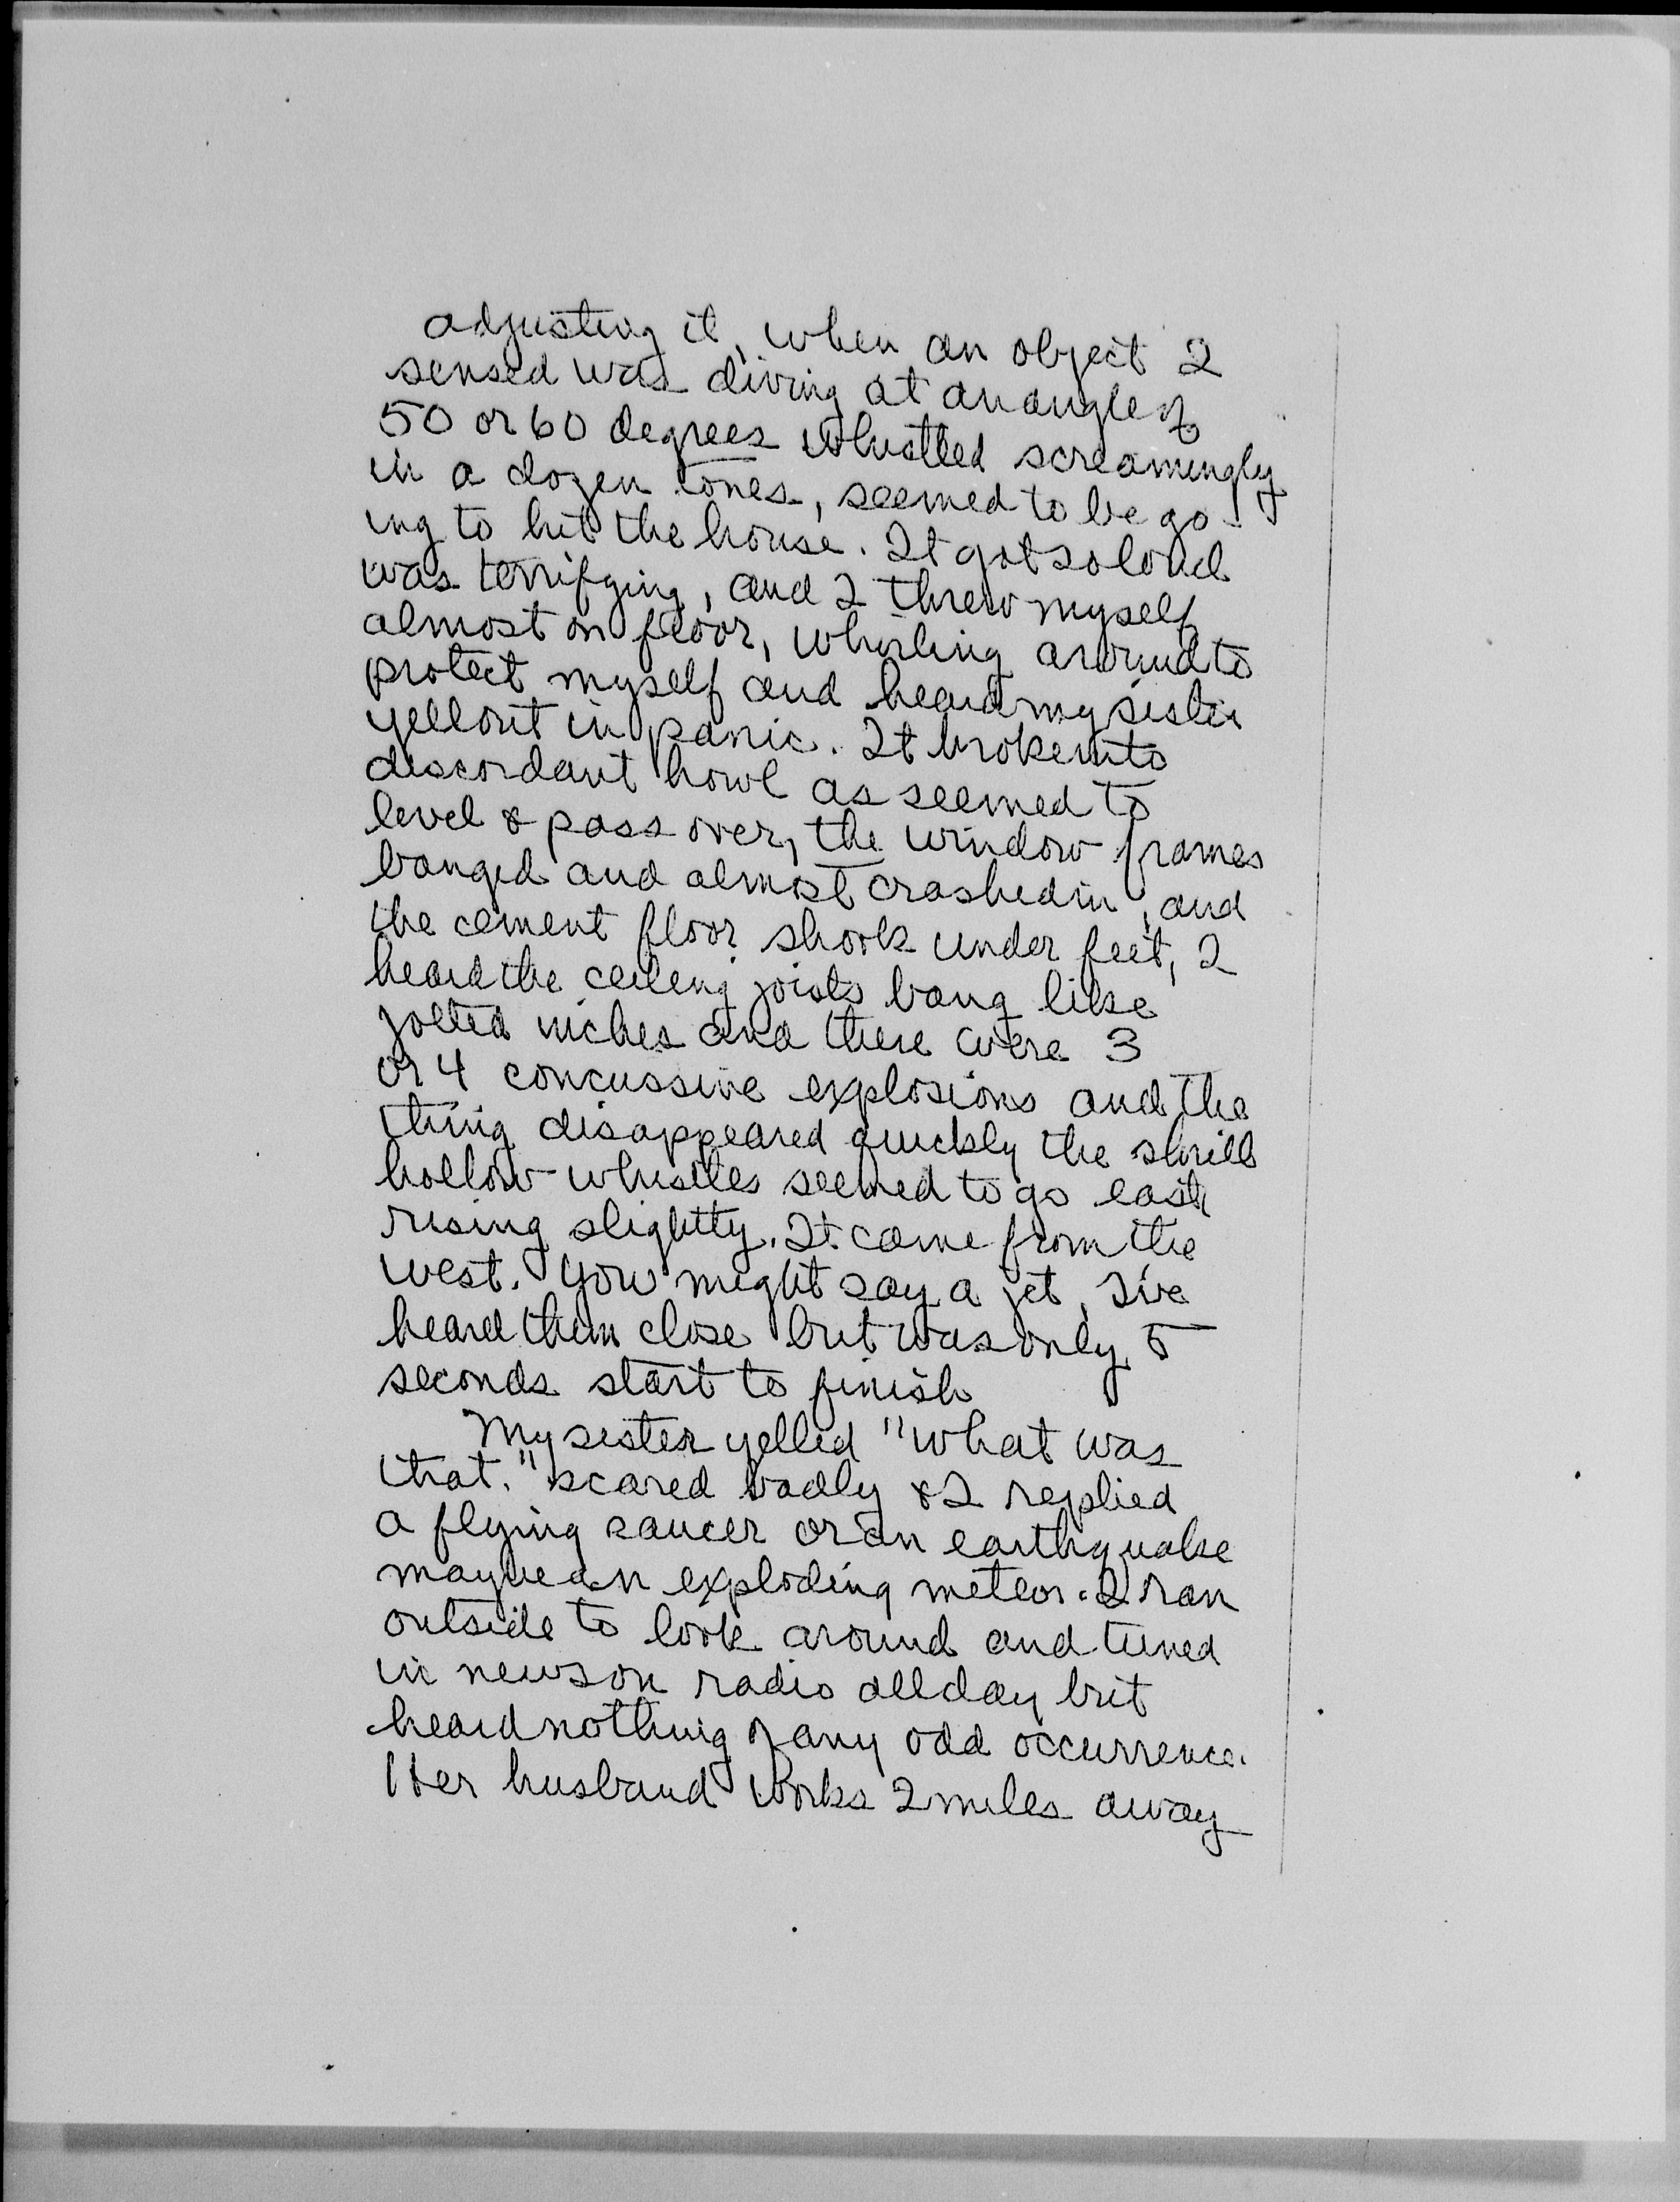 adjusting it, when an object I
sensed was diving at an angle of
50 or 60 degrees whistled screamingly
in a dozen tones, seemed to be go-
ing to hit the house. It got so loud
was terrifying, and I threw myself
almost on floor, whirling around to
protect myself and heard my sister
yell out in panic. It broke into
discordant howl as seemed to
level & pass over, the window frames
banged and almost crashed in, and
the cement floor shook under feet, I
heard the ceiling joists bang like
jolted inches and there were 3
or 4 concussive explosions and the
thing disappeared quickly the shrill
hollow whistles seemed to go east
rising slightly. It came from the
west. You might say a jet, I've
heard them close but was only 5
seconds start to finish
My sister yelled "what was
that." scared badly & I replied
a flying saucer or an earthquake
maybe an exploding meteor. I ran
outside to look around and tuned
in news on radio all day but
heard nothing of any odd occurrence.
Her husband works 2 miles away